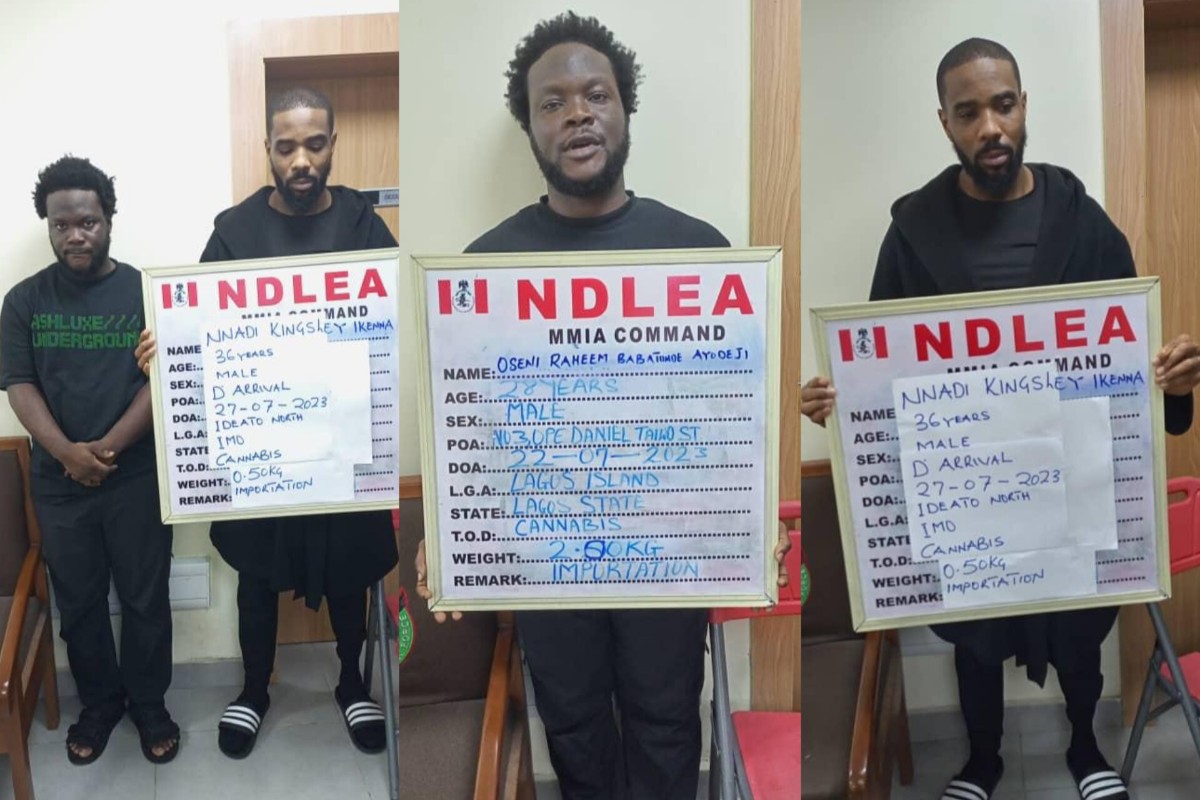 ASHLUXE///
UNDERGROUND
NDLEA
COMMAND
NAME
NNADI KINGSLEY IKENNA
AGE: 36 YEARS
SEX: MALE
POA: D' ARRIVAL
DOA: 27-07-2023
L.G.A: IDEATO NORTH
STATE IMO
T.O.D: CANNABIS
WEIGHT: 0.50KG
REMARK: IMPORTATION
NDLEA
MMIA COMMAND
NAME: OSENI RAHEEM BABATUNDE AYODEJI
AGE: 28 YEARS
SEX: MALE
POA: NO 3, OPE DANIEL TAIWO ST
DOA: 22-07-2023
L.G.A: LAGOS ISLAND
STATE: LAGOS STATE
T.O.D: CANNABIS
WEIGHT: 2.00KG
REMARK: IMPORTATION
FORCE
NDLEA
COMMAND
NAME
NNADI KINGSLEY IKENNA
AGE: 36 YEARS
SEX: MALE
POA: D' ARRIVAL
DOA: 27-07-2023
L.G.A: IDEATO NORTH
STATE IMO
T.O.D: CANNABIS
WEIGHT: 0.50KG
REMARK: IMPORTATION